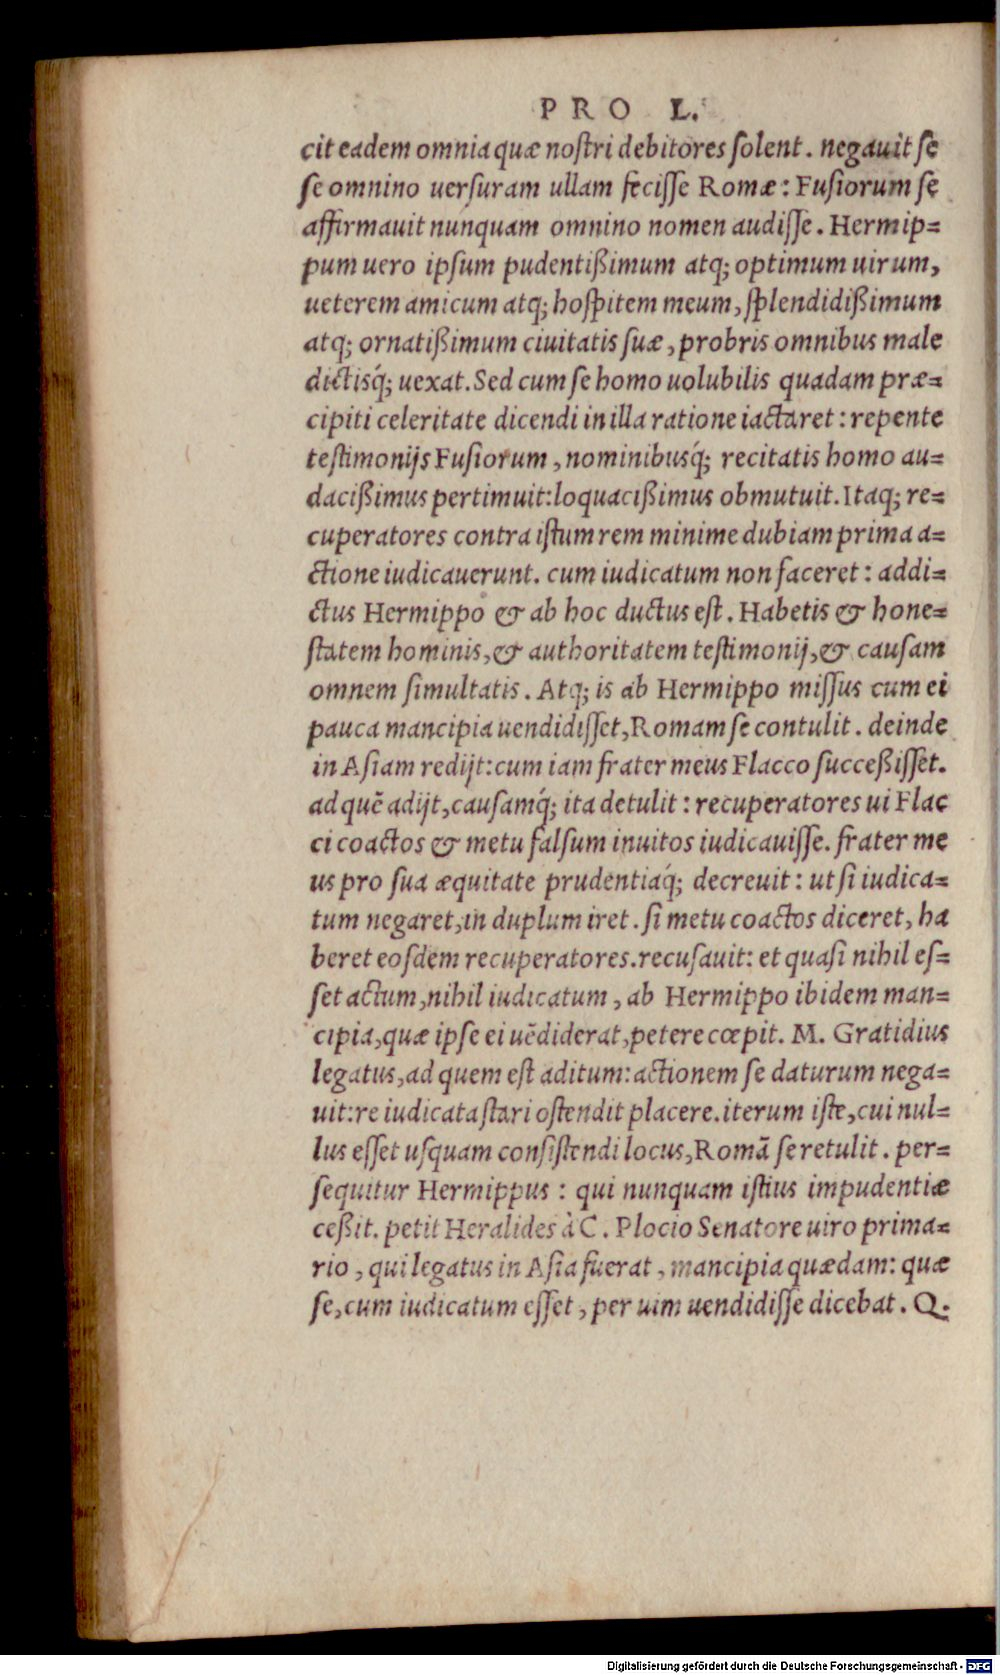 PRO L.
cit eadem omnia quæ nostri debitores solent. negauit se
se omnino uersuram ullam fecisse Romæ: Fusiorum se
affirmauit nunquam omnino nomen audisse. Hermip=
pum uero ipsum pudentißimum atq; optimum uirum,
ueterem amicum atq; hospitem meum, splendidißimum
atq; ornatißimum ciuitatis suæ, probris omnibus male
dictisq́; uexat. Sed cum se homo uolubilis quadam præ=
cipiti celeritate dicendi in illa ratione iactaret: repente
testimonijs Fusiorum, nominibusq́; recitatis homo au=
dacißimus pertimuit: loquacißimus obmutuit. Itaq; re=
cuperatores contra istum rem minime dubiam prima a=
ctione iudicauerunt. cum iudicatum non faceret: addi=
ctus Hermippo & ab hoc ductus est. Habetis & hone=
statem hominis, & authoritatem testimonij, & causam
omnem simultatis. Atq; is ab Hermippo missus cum ei
pauca mancipia uendidisset, Romam se contulit. deinde
in Asiam redijt: cum iam frater meus Flacco succeßisset.
ad quē adijt, causamq́; ita detulit: recuperatores ui Flac
ci coactos & metu falsum inuitos iudicauisse. frater me
us pro sua æquitate prudentiaq́; decreuit: ut si iudica=
tum negaret, in duplum iret. si metu coactos diceret, ha
beret eosdem recuperatores. recusauit: et quasi nihil es=
set actum, nihil iudicatum, ab Hermippo ibidem man=
cipia, quæ ipse ei uēdiderat, petere cœpit. M. Gratidius
legatus, ad quem est aditum: actionem se daturum nega=
uit: re iudicata stari ostendit placere. iterum iste, cui nul=
lus esset usquam consistendi locus, Romā se retulit. per=
sequitur Hermippus: qui nunquam istius impudentiæ
ceßit. petit Heralides à C. Plocio Senatore uiro prima=
rio, qui legatus in Asia fuerat, mancipia quædam: quæ
se, cum iudicatum esset, per uim uendidisse dicebat. Q.
Digitalisierung gefördert durch die Deutsche Forschungsgemeinschaft - DFG